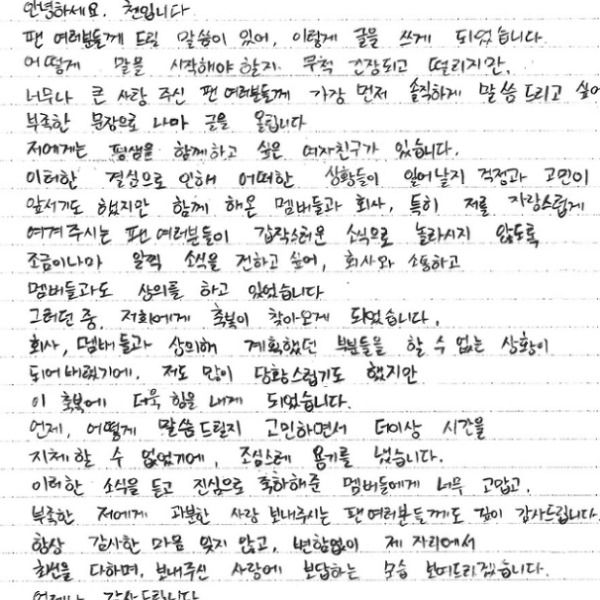 안녕하세요. 첸입니다.
팬 여러분들께 드릴 말씀이 있어, 이렇게 글을 쓰게 되었습니다.
어떻게 말을 시작해야 할지 무척 긴장되고 떨리지만,
너무나 큰 사랑 주신 팬 여러분들께 가장 먼저 솔직하게 말씀드리고 싶어
부족한 문장으로 나마 글을 올립니다
저에게는 평생을 함께하고 싶은 여자친구가 있습니다.
이러한 결심으로 인해 어떠한 상황들이 일어날지 걱정과 고민이
앞서기도 했지만 함께 해온 멤버들과 회사, 특히 저를 자랑스럽게
여겨주시는 팬 여러분들이 갑작스러운 소식으로 놀라시지 않도록
조금이나마 일찍 소식을 전하고 싶어, 회사와 소통하고
멤버들과도 상의를 하고 있었습니다
그러던 중, 저희에게 축복이 찾아오게 되었습니다.
회사, 멤버들과 상의해 계획했던 부분들을 할 수 없는 상황이
되어버렸기에, 저도 많이 당황스럽기도 했지만
이 축복에 더욱 힘을 내게 되었습니다.
언제, 어떻게 말씀드릴지 고민하면서 더이상 시간을
지체할 수 없었기에, 조심스레 용기를 냈습니다.
이러한 소식을 듣고 진심으로 축하해준 멤버들에게 너무 고맙고,
부족한 저에게 과분한 사랑 보내주시는 팬여러분들께도 깊이 감사드립니다.
항상 감사한 마음 잊지 않고, 변함없이 제 자리에서
최선을 다하며, 보내주신 사랑에 보답하는 모습 보여드리겠습니다.
언제나 감사드립니다